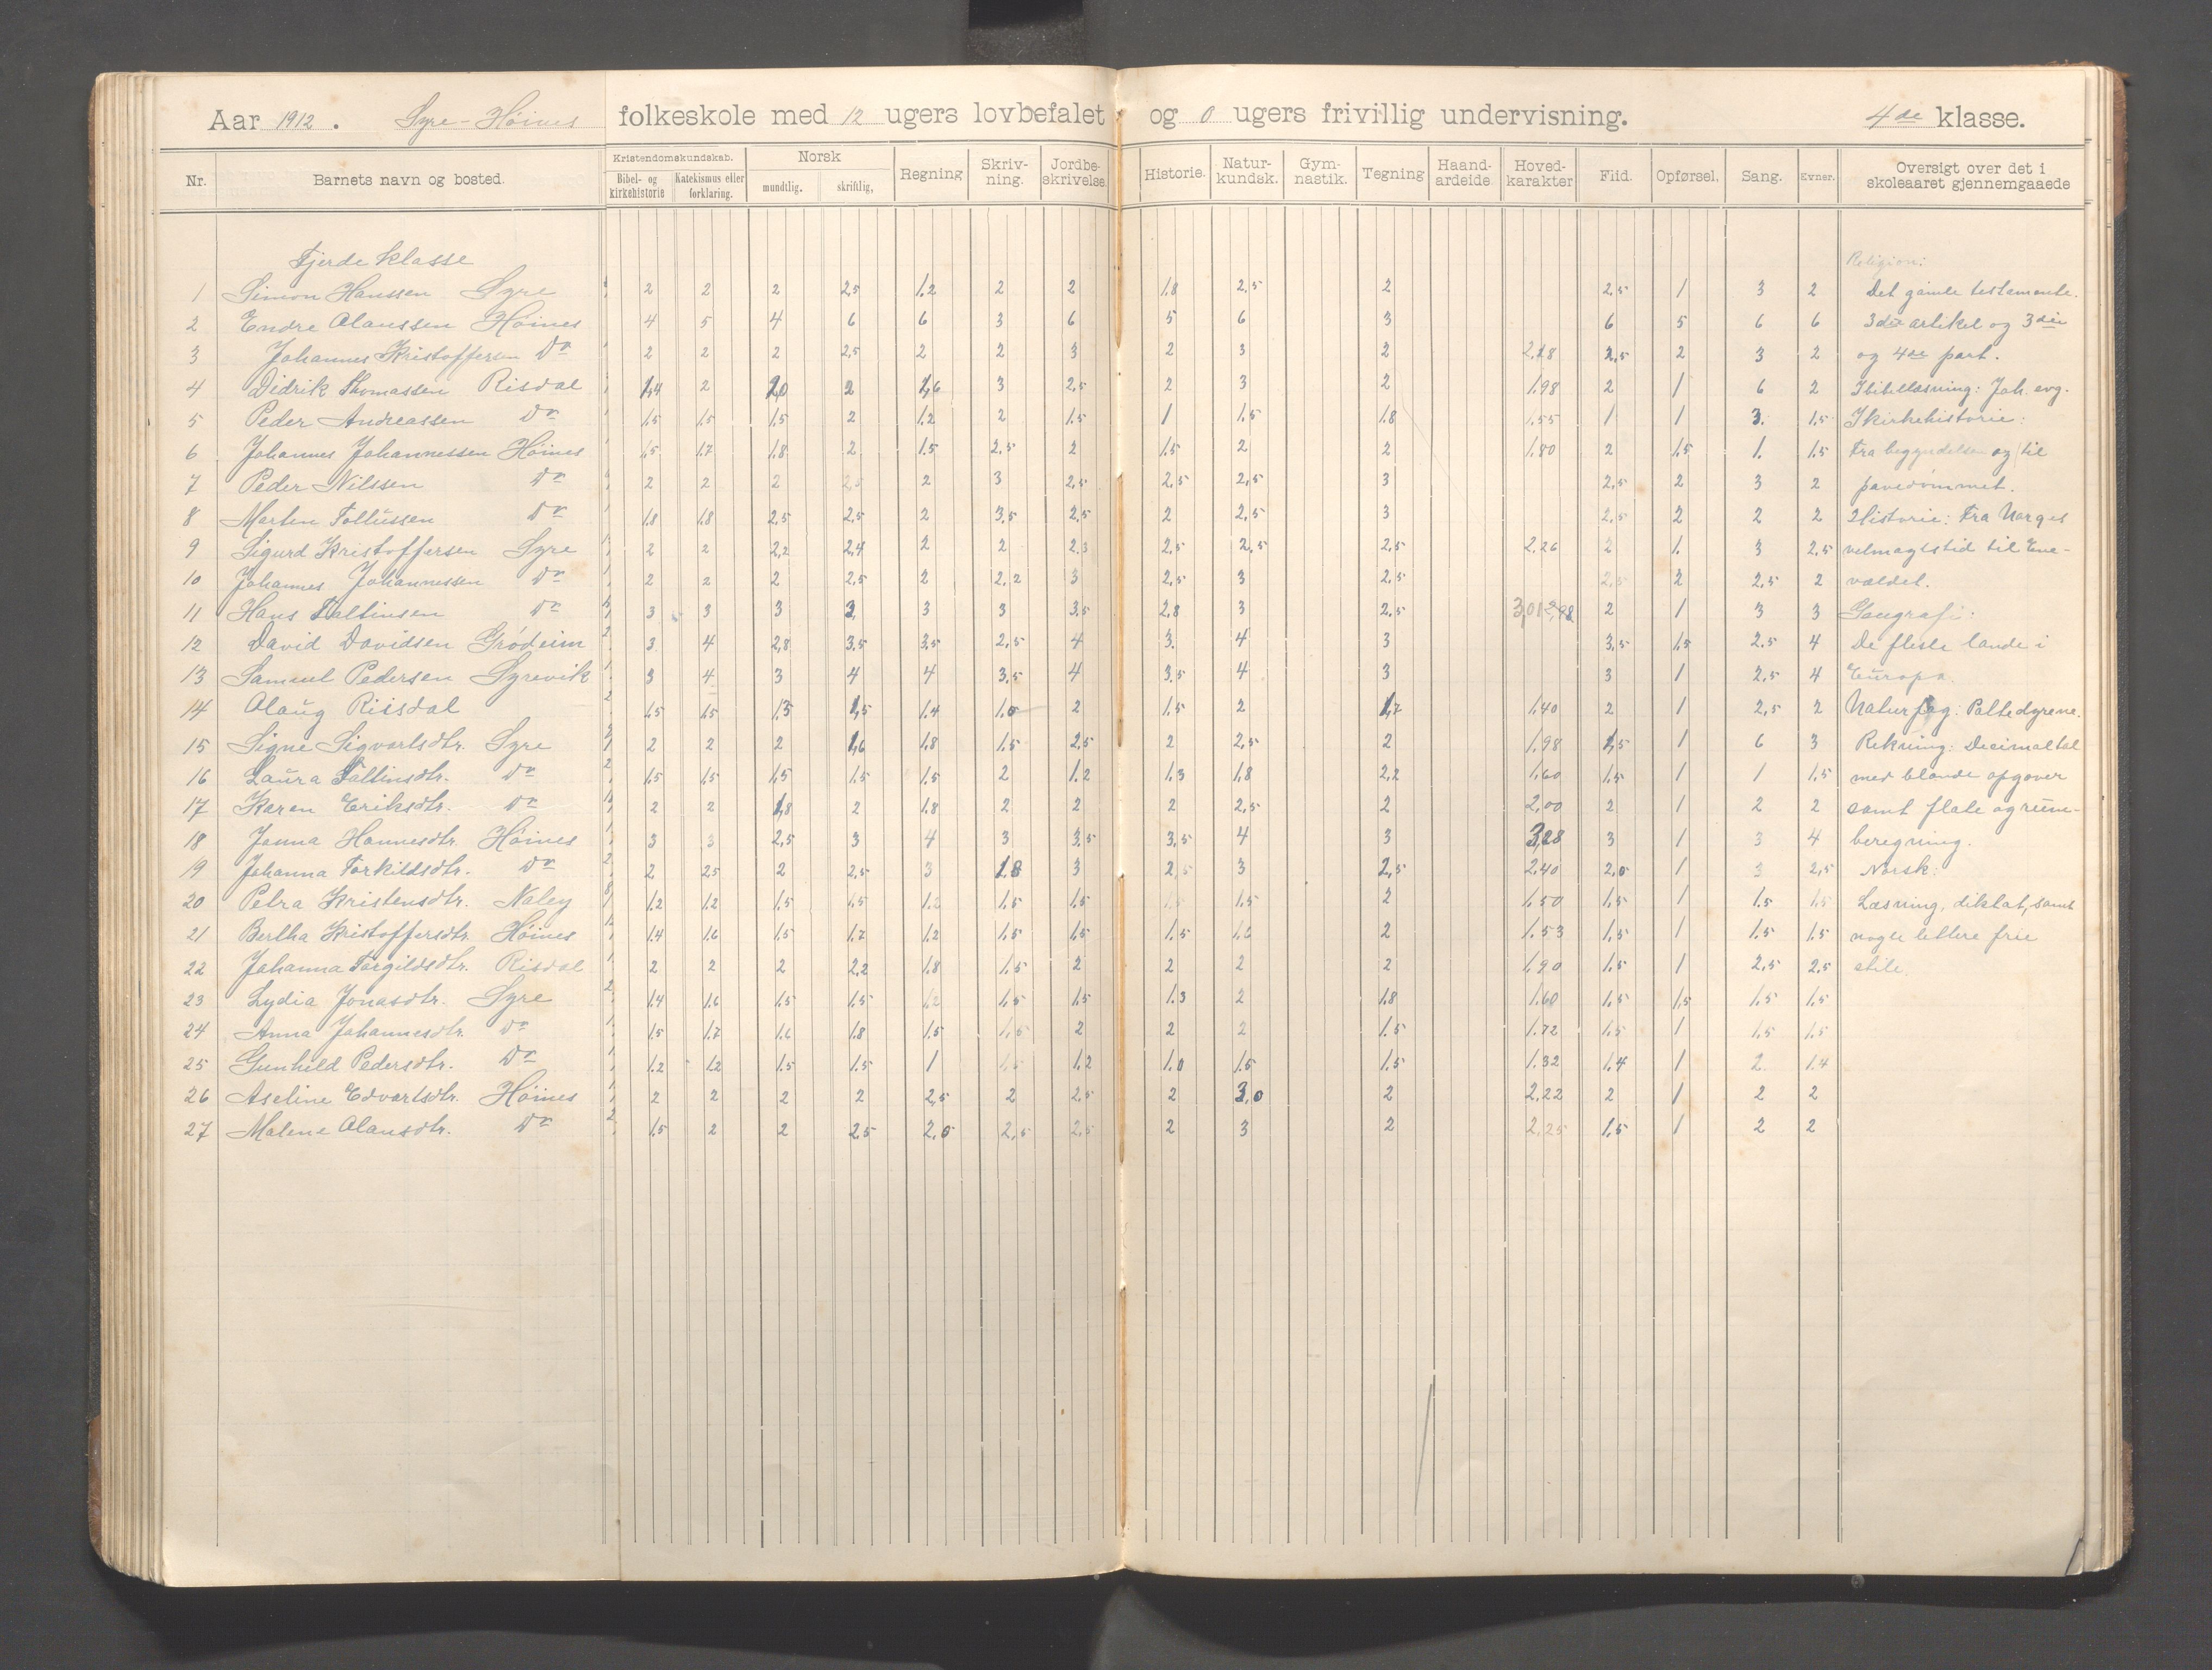 Aar 1912. Syre-Høines folkeskole med 12 ugers lovbefalet og 0 ugers frivillig undervisning. 4de klasse.
Nr. Barnets navn og bosted. Kristendomskundskab. Bibel- og kirkehistorie Katekismus eller forklaring. Norsk mundtlig. skriftlig, Regning Skriv-ning. Jordbe-skrivelse. Historie. Natur-kundsk. Gym-nastik. Tegning Haand-arbeide Hoved-karakter Flid. Opførsel. Sang. Evner. Oversigt over det i skoleaaret gjennemgaaede
Fjerde klasse Religion:
1 Simon Hanssen Syre 2 2 2 2,5 1.2 2 2 1.8 2,5 2 2,5 1 3 2 Det gamle testamente.
2 Endre Olaussen Høines 4 5 4 6 6 3 6 5 6 3 6 5 6 6 3die artikel og 3die
3 Johannes Kristoffersen Do 2 2 2 2,5 2 2 3 2 3 2 2,18 2,5 2 3 2 og 4de part.
4 Didrik Thomassen Risdal 1,4 2 2,0 2 1,6 3 2,5 2 3 2 1,98 2 1 6 2 I bibellæsning: Joh. evg.
5 Peder Andreassen Do 1.5 1.5 1.5 2 1.2 2 1.5 1 1.5 1.8 1.55 1 1 3. 1.5 I kirkehistorie:
6 Johannes Johannessen Høines 1.5 1.7 1.8 2 1.5 2.5 2 1.5 2 2 1.80 2 1,5 1. 1.5 Fra begyndelsen og til
7 Peder Nilssen Do 2 2 2 2,5 2 3 2,5 2,5 2,5 3 2,5 2 3 2 pavedømmet.
8 Morten Tollussen Do 1.8 1.8 2,5 2,5 2 3,5 2,5 2 2,5 3 2,5 2 2 2 Historie: Fra Norges
9 Sigurd Kristoffersen Syre 2 2 2,2 2,4 2 2 2.3 2,5 2,5 2,5 2.26 2 1. 3 2,5 velmagtstid til Ene-
10 Johannes Johannessen Do 2 2 2 2,5 2 2,2 3 2,5 3 2,5 2,5 2 2,5 2 vældet.
11 Hans Tallinsen Do 3 3 3 3 3 3 3.5 2,8 3 2,5 3,01 2,98 2 1 3 3 Geografi:
12 David Davidsen Grødeim 3 4 2,8 3.5 3.5 2,5 4 3. 4 3 3,5 1,5 2.5 4 De fleste lande i
13 Samuel Pedersen Syrevik 3 4 3 4 4 3,5 4 3.5 4 3 3 1 2,5 4 Europa.
14 Olaug Risdal 1.5 1.5 1.5 1,5 1.4 1.0 2 1.5 2 1,7 1.40 2 1 2,5 2 Naturfag: Pattedyrene.
15 Signe Sigvartsdtr. Syre 2 2 2 1,6 1.8 1.5 2,5 2 2,5 2 1,98 1,5 1 6 3 Rekning: Decimaltal
16 Laura Tallinsdtr. Do 1.5 1.5 1.5 1.5 1.5 2 1.2 1.3 1,8 2,2 1,60 1.5 1 1 1.5 med blande opgaver
17 Karen Eriksdtr. Do 2 2 1,8 2 1.8 2 2 2 2,5 2 2,00 2 1 2 2 samt flate og rum-
18 Janna Hannesdtr. Høines 3 3 2,5 3 4 3 3,5 3,5 4 3 3,28 3 1 3 4 beregning.
19 Johanna Torkildsdtr. Do 2 2.5 2 2,5 3 1.8 3 2,5 3 2,5 2,40 2,0 1 3 2,5 Norsk:
20 Petra Kristensdtr. Naley 1.2 1.2 1.5 1.5 1.2 1.5 1.5 1.5 1.5 2 1.50 1.5 1 1.5 1.5 Læsning, diktat, samt
21 Bertha Kristoffersdtr. Høines 1.4 1.6 1.5 1.7 1.2 1,5 1,5 1.5 1,6 2 1.53 1,5 1 1.5 1.5 nogle lettere frie
22 Johanna Torgildsdtr. Risdal 2 2 2 2,2 1.8 1.5 2 2 2 2 1,90 1.5 1 2,5 2,5 stile.
23 Lydia Jonasdtr. Syre 1.4 1.6 1.5 1.5 1.2 1,5 1.5 1.3 2 1.8 1.60 1.5 1,5 1.5 1.5
24 Anna Johannesdtr. Do 1.5 1.7 1.6 1.8 1.5 1,5 2 2 2 1.5 1.72 1.5 1 1.5 1.5
25 Gunhild Pedersdtr. Do 1.2 1.2 1.5 1.5 1 1.5 1.2 1.0 1.5 1.5 1.32 1.4 1 2 1.4
26 Aseline Edvartsdtr. Høines 2 2 2 2 2,5 2 2,5 2 3,0 2 2,22 2 1 2 2
27 Malene Olausdtr. Do 1.5 2 2 2,5 2,0 2,5 2,5 2 3 2 2,25 1.5 1 2 2